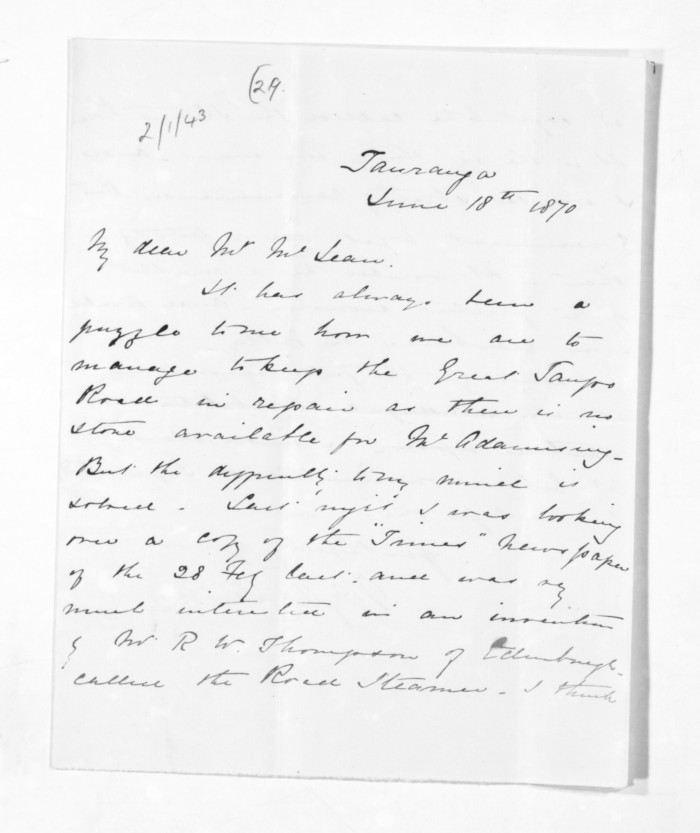 (29.
2/1/43
Tauranga
June 18th 1870
My dear Mr McLean.
It has always been a
puzzle to me how we are to
manage to keep the Great Taupo
Road in repair as there is no
stone available for McAdamising_
But the difficulty to my mind is
solved. Last night I was looking
over a copy of the "Times" Newspaper
of the 28 Feby last. and was very
much interested in an invention
by Mr R W. Thompson of Edinburgh.
called the Road Steamer. I think